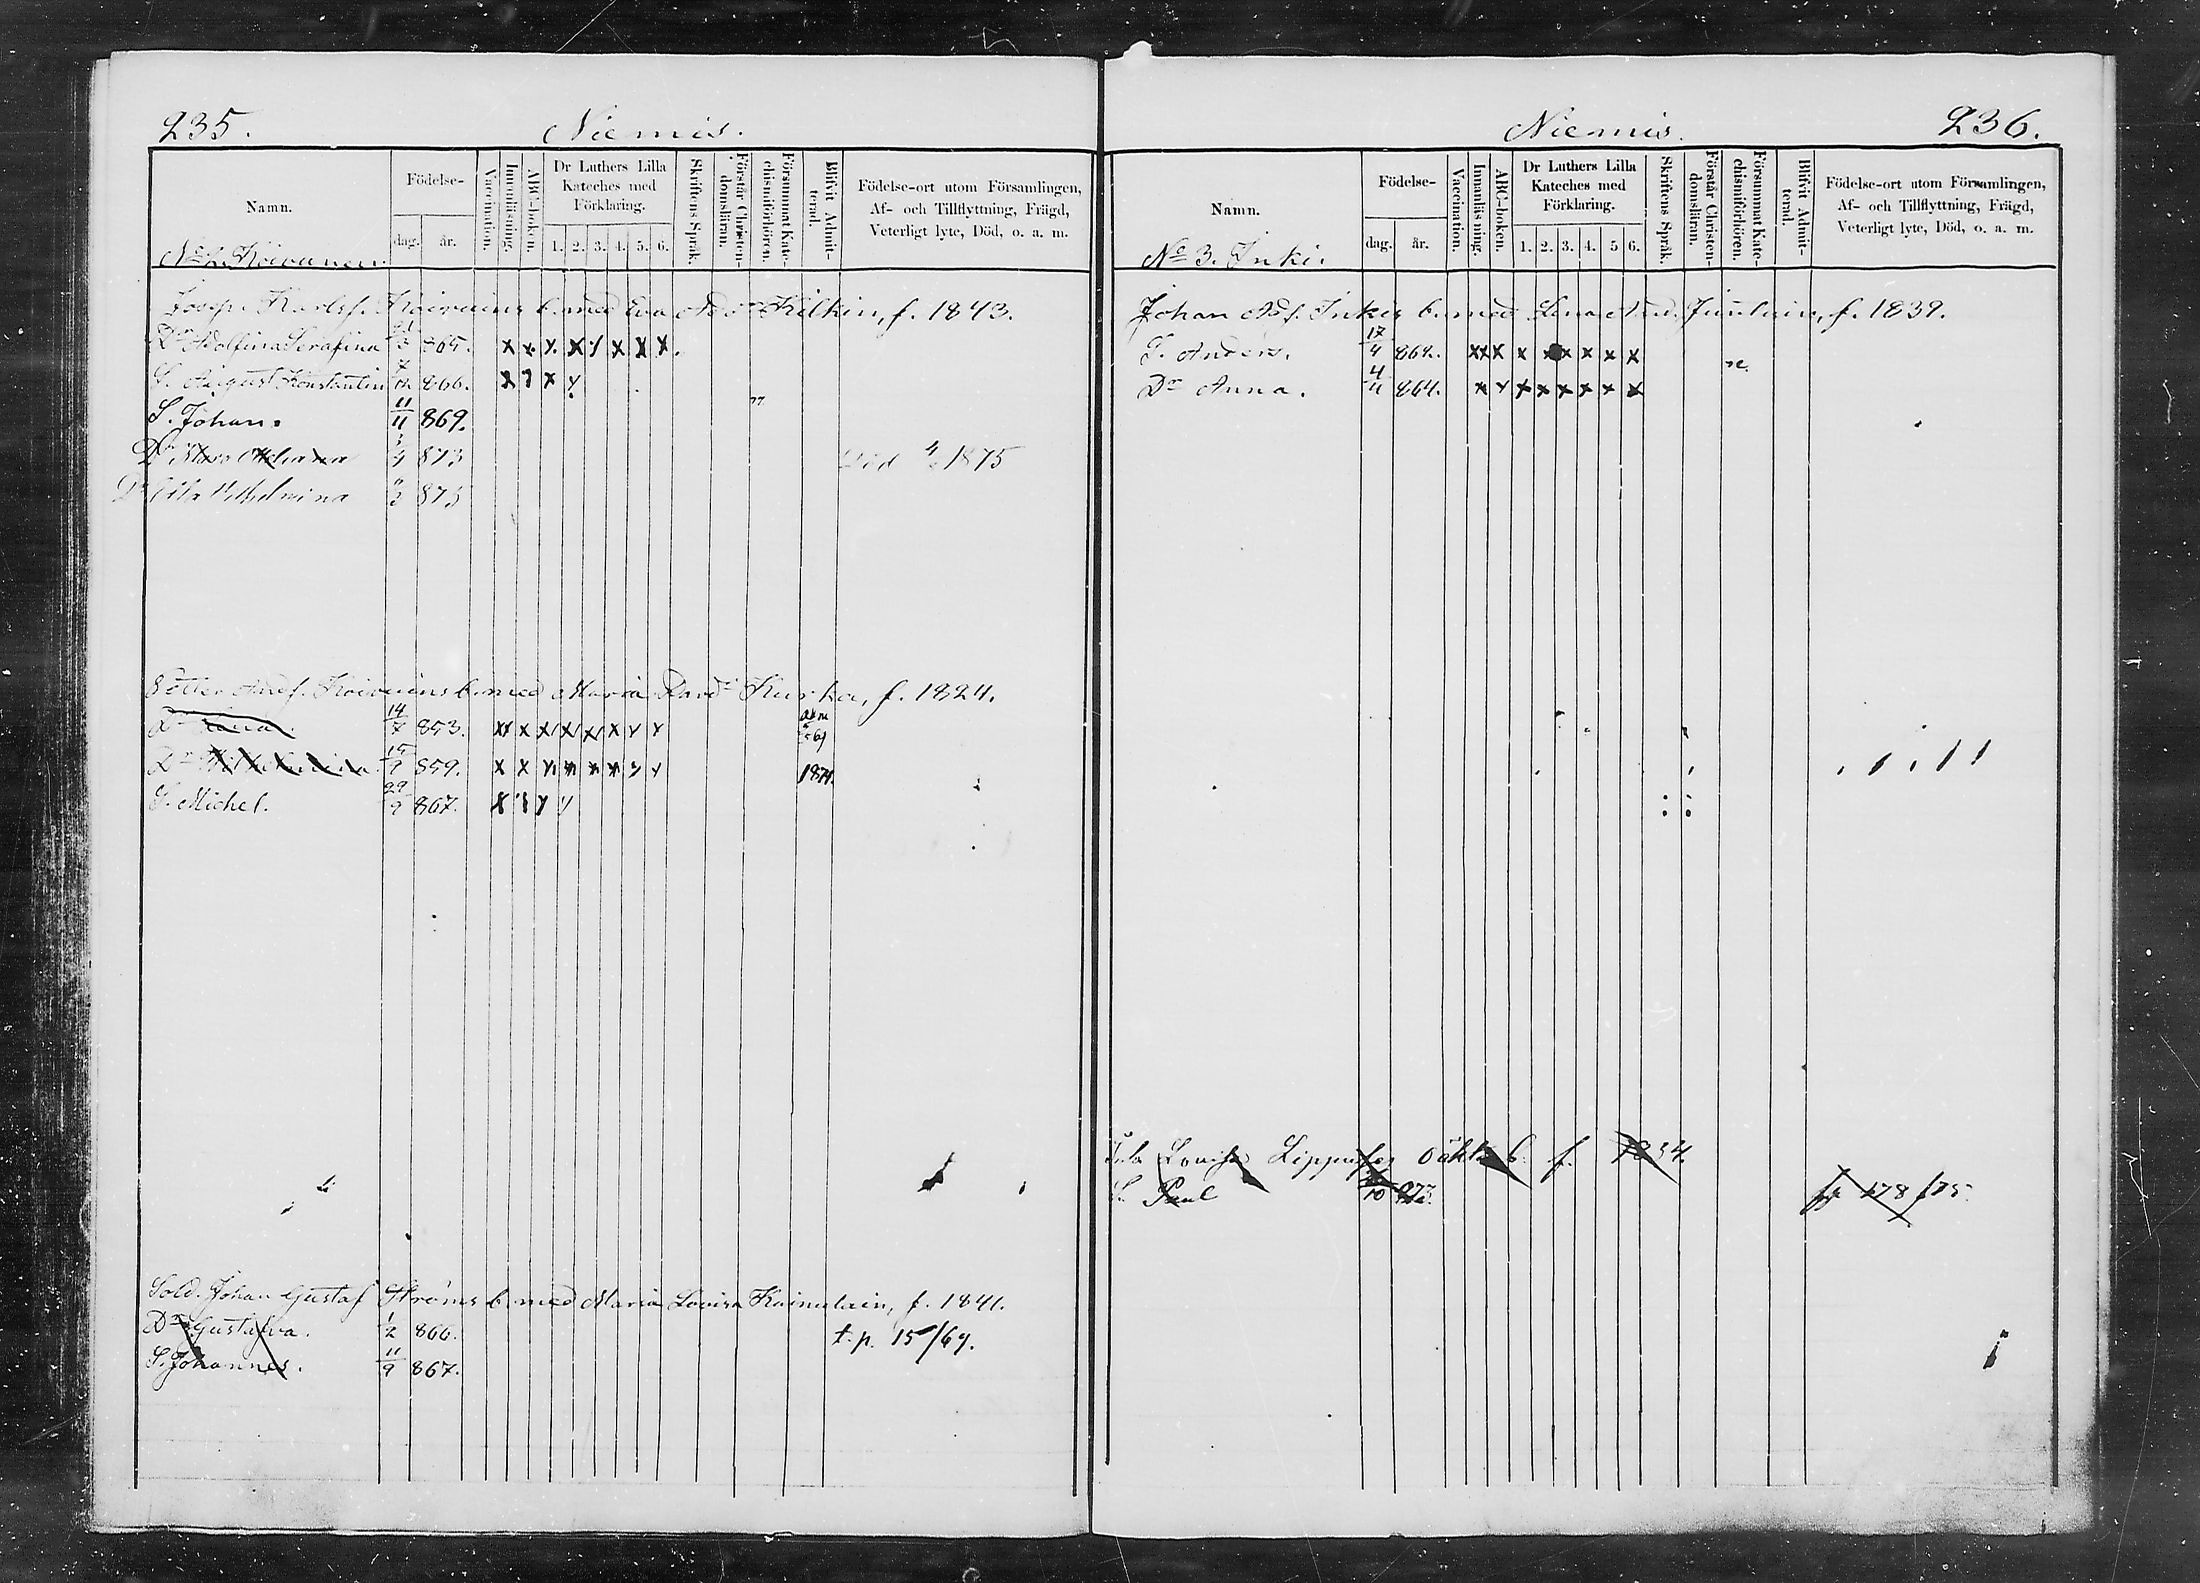 235.
Niemis.
Namn.
Födelse-
dag. år.
Vaccination.
Innanläsning.
ABC-boken.
Dr Luthers Lilla Kateches med Förklaring.
1. 2. 3. 4. 5. 6.
Skriftens Språk.
Förstår Christen-domsläran.
Försummat Kate-chismiförhören.
Blifvit Admit-terad.
Födelse-ort utom Församlingen,
Af- och Tillflyttning, Frägd,
Veterligt lyte, Död, o. a. m.
No 2. Koivunen
Josep. Karlss. Koivuins b. med Eva Ad. dr Kilkin, f. 1843.
Dr Adolfina Serafina 865. x x x x x x x x
S. August Konstantin 866. x x x x
S. Johan. 11/11 869.
Dr 873 Död 1875
Dr Vilhelmina 875
Petter And.s. Koivuins b. med Maria Davd. Kurka, f. 1824.
Dr 14/7 853. x x x x x x x x
Dr 15/9 859. x x x x x x x x 1874.
S. Michel. 29/9 867. x x x x
Sold. Johan Gustaf Ströms b. med Maria Lovisa Kainulain, f. 1841.
Dr Gustafva. 1/2 866. t. p. 15/69.
S. Johannes. 11/9 867.
236.
Niemis.
Namn.
Födelse-
dag. år.
Vaccination.
Innanläsning.
ABC-boken.
Dr Luthers Lilla Kateches med Förklaring.
1. 2. 3. 4. 5 6.
Skriftens Språk.
Förstår Christen-domsläran.
Försummat Kate-chismiförhören.
Blifvit Admit-terad.
Födelse-ort utom Församlingen,
Af- och Tillflyttning, Frägd,
Veterligt lyte, Död, o. a. m.
No 3. Inki.
Johan Ad.s. Inkis b. med Lena And. Juntain, f. 1839.
S. Anders. 17/4 862. x x x x x x x x x
Dr Anna. 4/11 864. x x x x x x x x x
Lovisa Lippujas oäkta b. f. 1834.
S. Paul 873. 178 f 75.